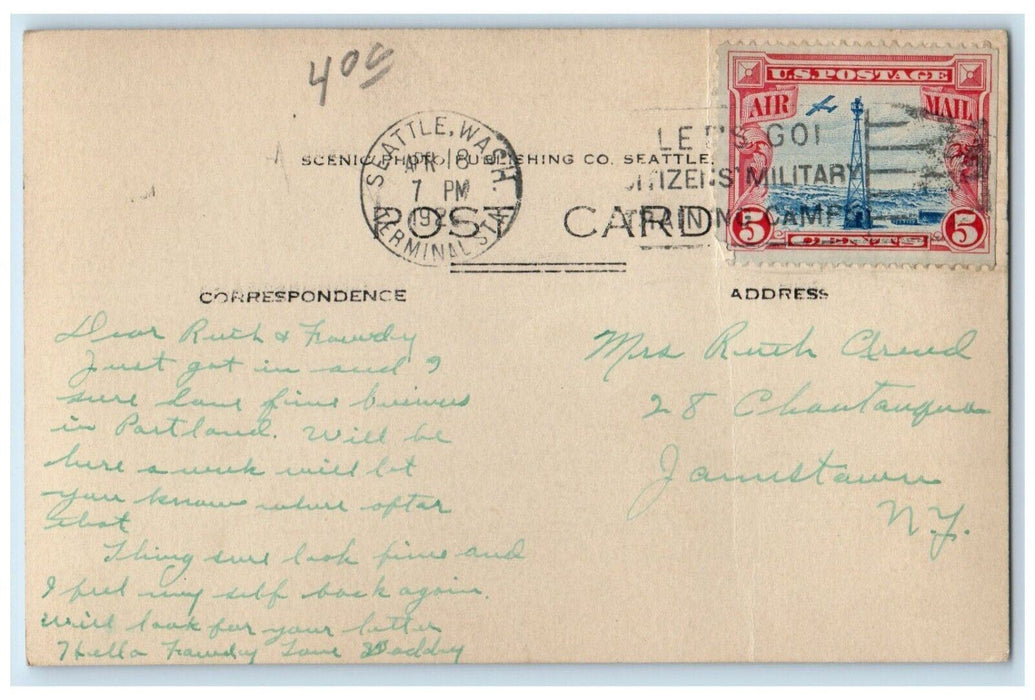 400
U.S. POSTAGE
AIR MAIL
5 CENTS 5
SEATTLE, WASH.
APR 18
7 PM
TERMINAL STA.
LET'S GO!
CITIZENS' MILITARY
TRAINING CAMP
SCENIC PHOTO PUBLISHING CO. SEATTLE,
POST CARD
CORRESPONDENCE
ADDRESS
Dear Ruth &
Just got in and I
sure done fine business
in Portland. Will be
here a week will let
you know where after
that
Thing sure look fine and
I feel my self back again.
Will look for your letter
Hello Love Daddy
Mrs Ruth
28 Chautauqua
Jamestown
N.Y.